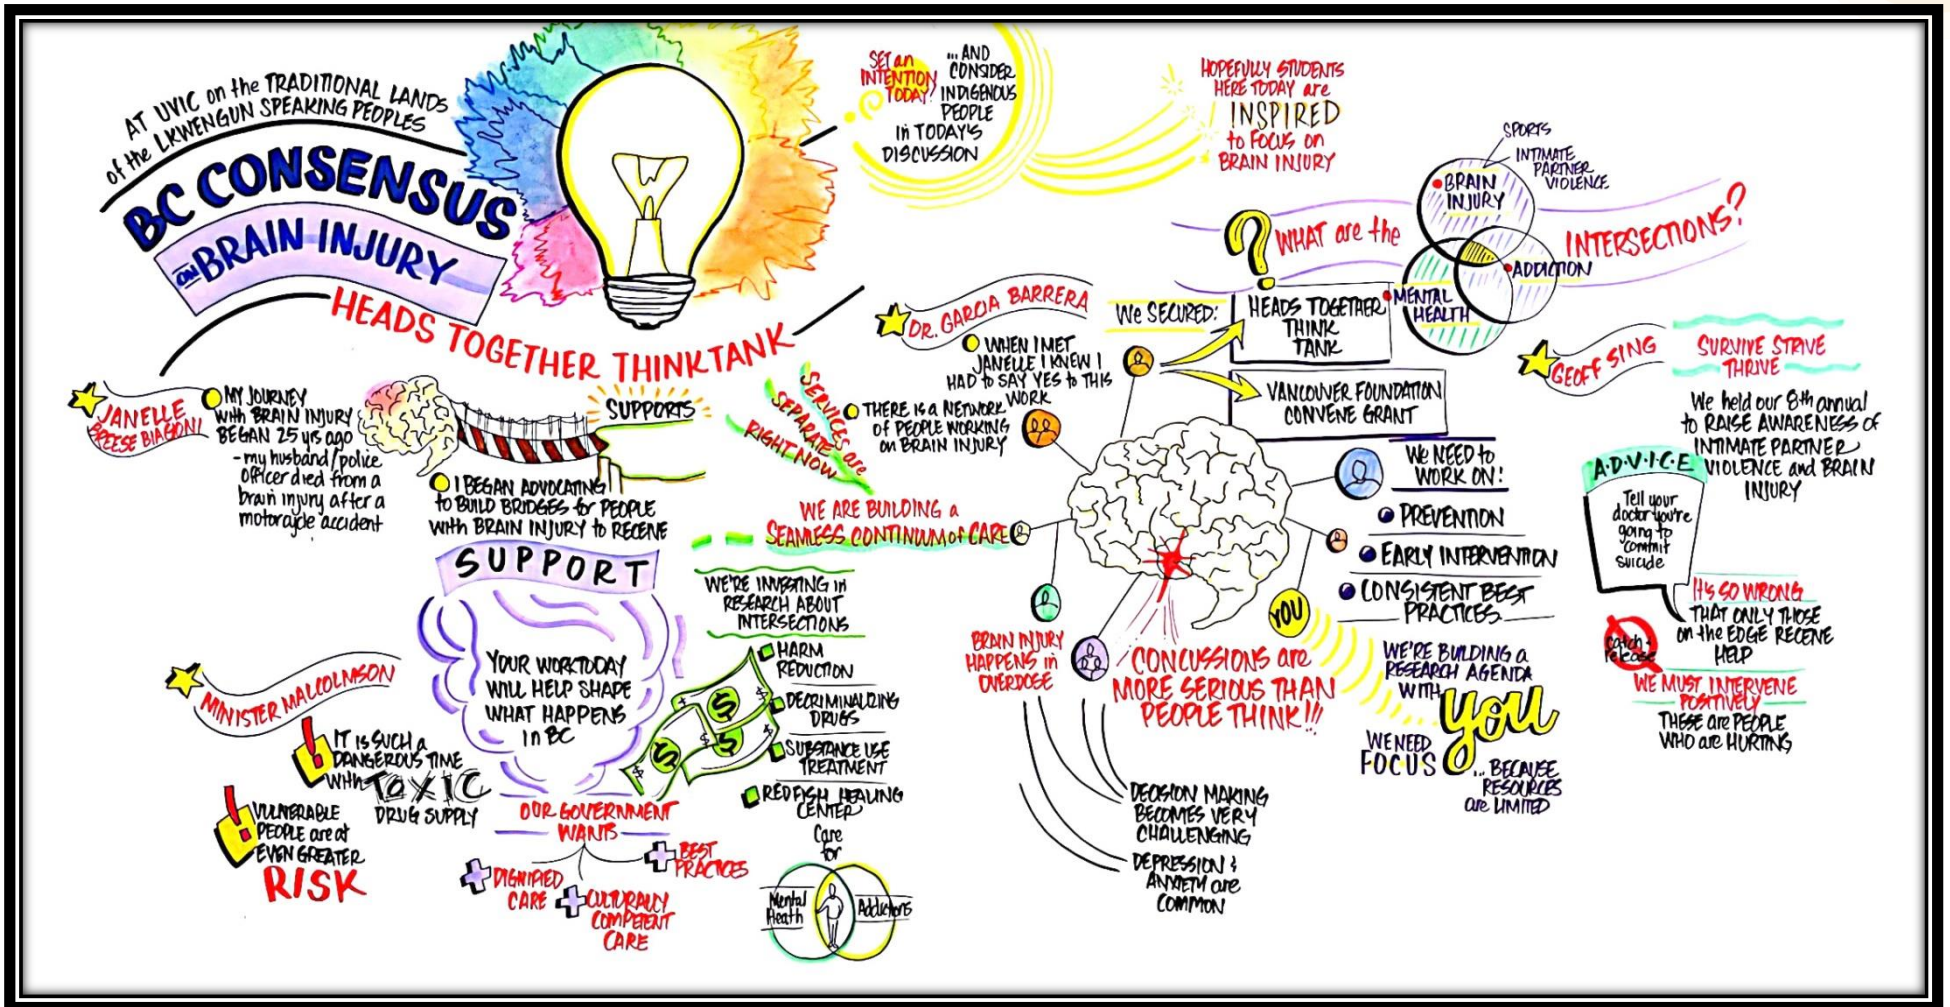 AT UVIC on the TRADITIONAL LANDS
of the LKWENGUN SPEAKING PEOPLES
BC CONSENSUS
ON BRAIN INJURY
HEADS TOGETHER THINK TANK
SET an
INTENTION
TODAY!
...AND
CONSIDER
INDIGENOUS
PEOPLE
in TODAY'S
DISCUSSION
HOPEFULLY STUDENTS
HERE TODAY are
INSPIRED
to FOCUS on
BRAIN INJURY
? WHAT are the
INTERSECTIONS?
SPORTS
INTIMATE
PARTNER
VIOLENCE
BRAIN
INJURY
ADDICTION
MENTAL
HEALTH
JANELLE
BREESE BIAGIONI
MY JOURNEY
with BRAIN INJURY
BEGAN 25 yrs ago
- my husband/police
officer died from a
brain injury after a
motorcycle accident
SUPPORTS
I BEGAN ADVOCATING
to BUILD BRIDGES for PEOPLE
with BRAIN INJURY to RECEIVE
SUPPORT
SERVICES
SEPARATE are
RIGHT NOW
WE ARE BUILDING a
SEAMLESS CONTINUUM of CARE
DR. GARCIA BARRERA
WHEN I MET
JANELLE I KNEW I
HAD to SAY YES to THIS
WORK
THERE IS a NETWORK
OF PEOPLE WORKING
on BRAIN INJURY
We SECURED:
HEADS TOGETHER
THINK
TANK
VANCOUVER FOUNDATION
CONVENE GRANT
We NEED to
WORK ON:
PREVENTION
EARLY INTERVENTION
CONSISTENT BEST
PRACTICES
YOU
WE'RE BUILDING a
RESEARCH AGENDA
WITH
you
WE NEED
FOCUS
... BECAUSE
RESOURCES
are LIMITED
BRAIN INJURY
HAPPENS in
OVERDOSE
CONCUSSIONS are
MORE SERIOUS THAN
PEOPLE THINK!!!
DECISION MAKING
BECOMES VERY
CHALLENGING
DEPRESSION &
ANXIETY are
COMMON
GEOFF SING
SURVIVE STRIVE
THRIVE
We held our 8th annual
to RAISE AWARENESS OF
INTIMATE PARTNER
VIOLENCE and BRAIN
INJURY
A·D·V·I·C·E
Tell your
doctor you're
going to
commit
suicide
It's SO WRONG
THAT ONLY THOSE
on the EDGE RECEIVE
HELP
catch +
release
WE MUST INTERVENE
POSITIVELY
THESE are PEOPLE
WHO are HURTING
MINISTER MALCOLMSON
IT IS SUCH a
DANGEROUS TIME
WITH TOXIC
DRUG SUPPLY
VULNERABLE
PEOPLE are at
EVEN GREATER
RISK
YOUR WORK TODAY
WILL HELP SHAPE
WHAT HAPPENS
in BC
OUR GOVERNMENT
WANTS
DIGNIFIED
CARE
CULTURALLY
COMPETENT
CARE
BEST
PRACTICES
WE'RE INVESTING in
RESEARCH ABOUT
INTERSECTIONS
HARM
REDUCTION
DECRIMINALIZING
DRUGS
SUBSTANCE USE
TREATMENT
RED FISH HEALING
CENTER
Care
for
Mental
Heath
Addictions